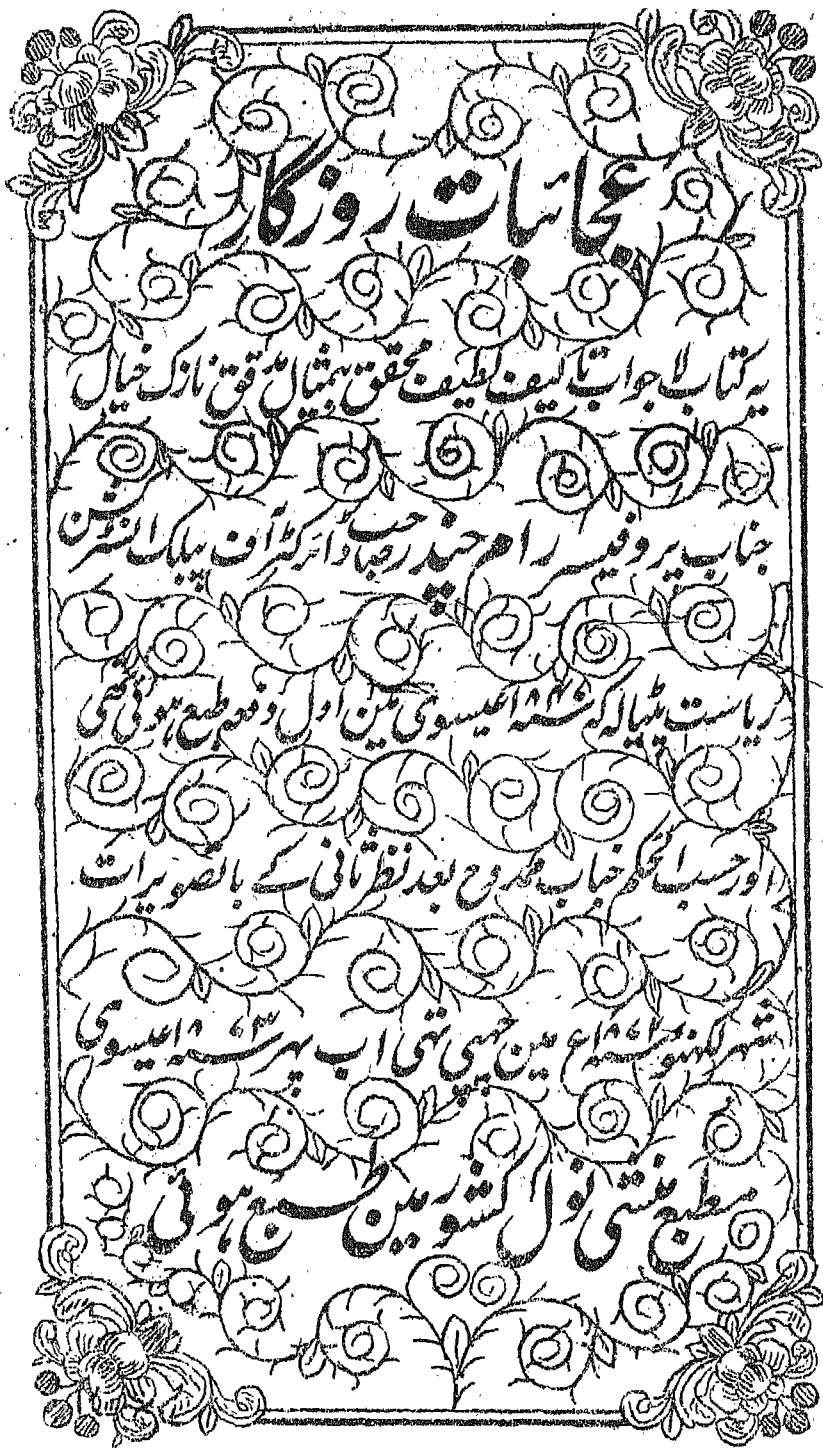 عجائبات روزگار
یہ کتاب لاجواب تالیف لطیف محقق بیمثال مدقق نازک خیال
جناب پروفیسر رام چندر صاحب ڈائرکٹر آف پبلک انسٹرکشن
ریاست پٹیالہ کہ عیسوی مین اول دفعہ طبع ہوئی تھی
اور حسب الحکم جناب ممدوح بعد نظر ثانی کے با تصویرات
شہر لکھنو مین چھپی تھی اب پھر عیسوی
مطبع منشی نول کشور مین طبع ہوئی